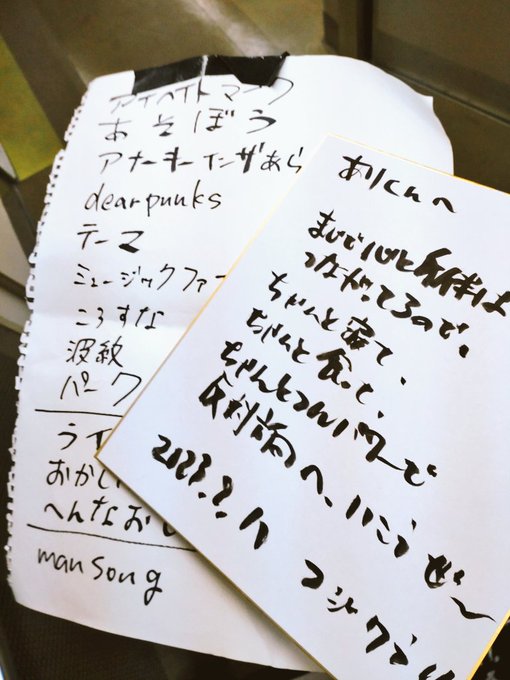 アイヘイトマーク
あそぼう
アナーキーインザあら
dear punks
テーマ
ミュージックファー
ころすな
波紋
パーク
ライ
おかし
へんなおじ
man song
ありくんへ
まじで心と身体は
つながってるので、
ちゃんと寝て、
ちゃんと食って、
ちゃんとフルパワーで
反対側へ、いこうぜ〜
2023.8.17